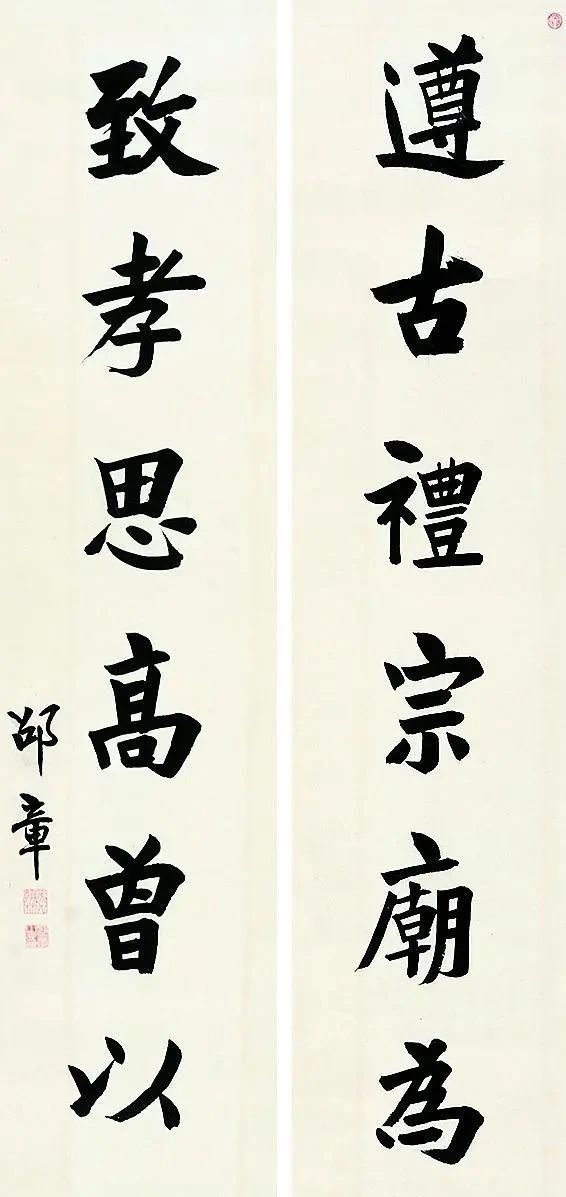 遵古禮宗廟為
致孝思高曾以
邵章